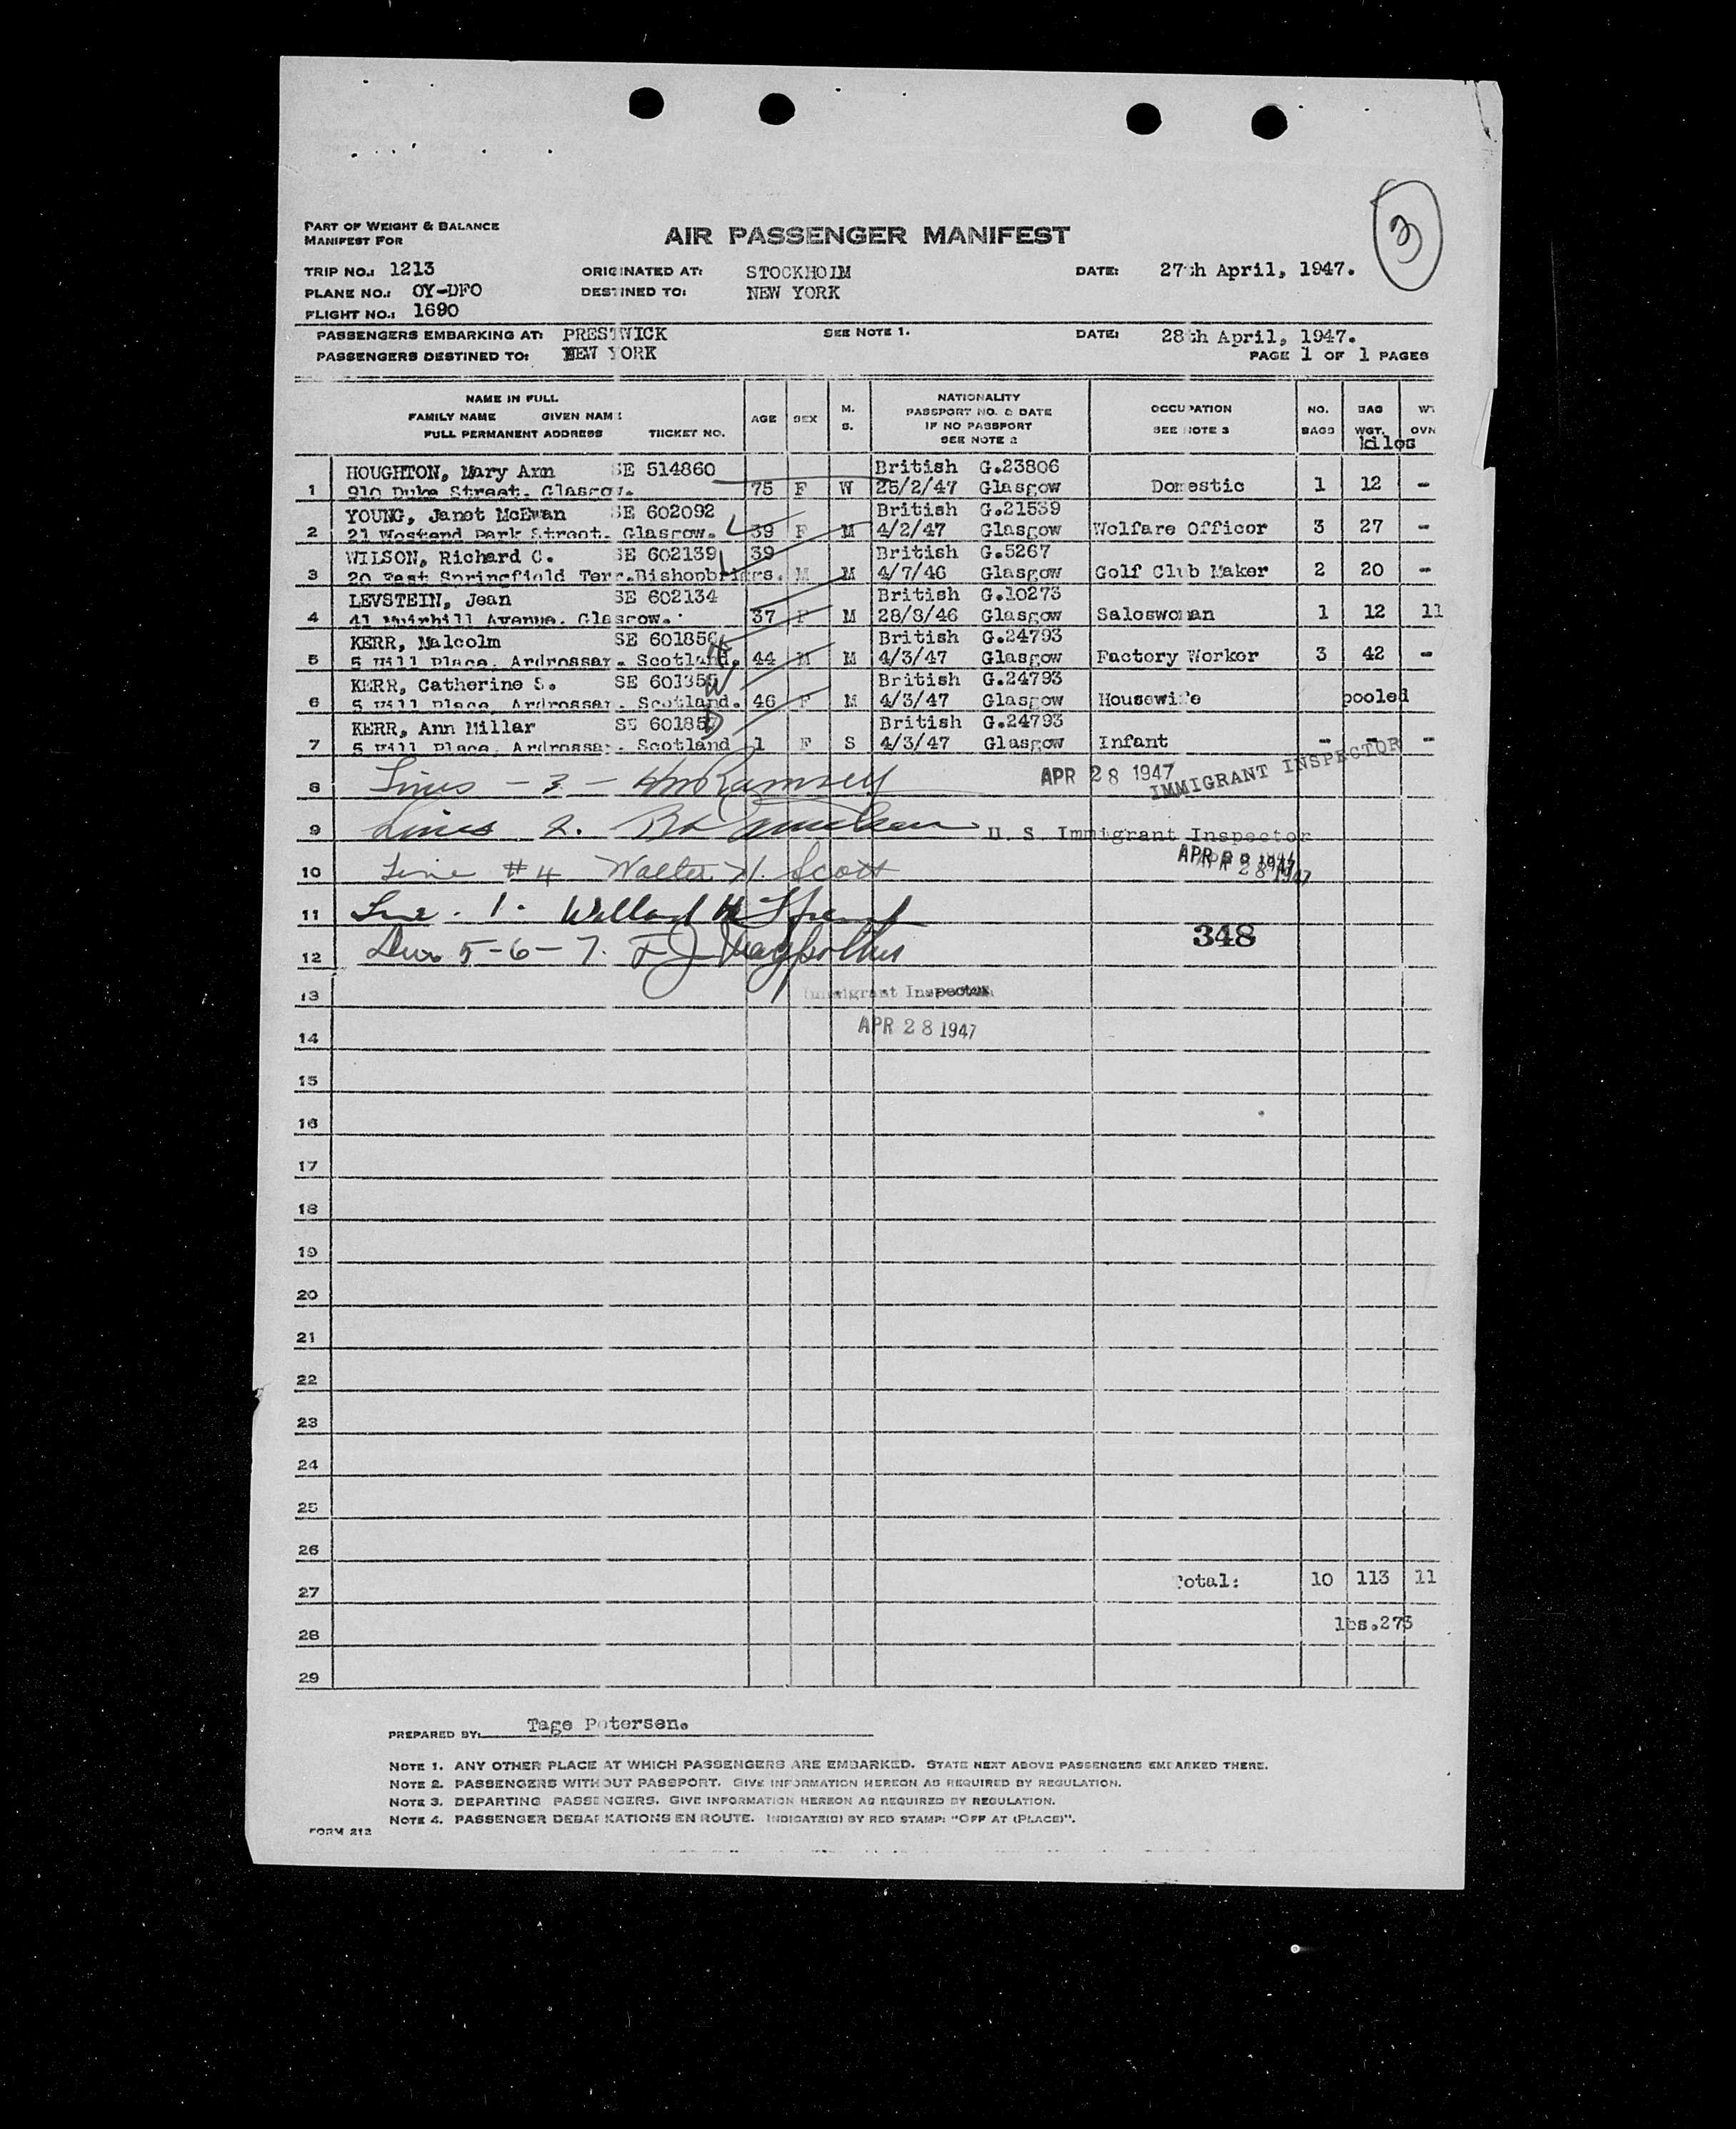 3
PART OF WEIGHT & BALANCE
MANIFEST FOR
AIR PASSENGER MANIFEST
TRIP NO.: 1213 ORIGINATED AT: STOCKHOLM DATE: 27th April, 1947.
PLANE NO.: OY-DFO DESTINED TO: NEW YORK
FLIGHT NO.: 1690
PASSENGERS EMBARKING AT: PRESTWICK SEE NOTE 1. DATE: 28th April, 1947.
PASSENGERS DESTINED TO: NEW YORK PAGE 1 OF 1 PAGES
NAME IN FULL
FAMILY NAME GIVEN NAME
FULL PERMANENT ADDRESS TIICKET NO.
AGE SEX M. S.
NATIONALITY
PASSPORT NO. & DATE
IF NO PASSPORT
SEE NOTE 2
OCCUPATION
SEE NOTE 3
NO. BAGS BAG WGT. WT OVN
kilos
HOUGHTON, Mary Ann SE 514860 British G.23806
1 910 Duke Street. Glasgow. 75 F W 25/2/47 Glasgow Domestic 1 12 -
YOUNG, Janet McEwan SE 602092 British G.21539
2 21 Westend Park Street. Glasgow. 39 F M 4/2/47 Glasgow Welfare Officer 3 27 -
WILSON, Richard C. SE 602139 39 British G.5267
3 20 East Springfield Terr.Bishopbriggs. M M 4/7/46 Glasgow Golf Club Maker 2 20 -
LEVSTEIN, Jean SE 602134 British G.10273
4 41 Muirhill Avenue. Glasgow. 37 F M 28/8/46 Glasgow Saleswoman 1 12 11
KERR, Malcolm SE 601856 H British G.24793
5 5 Hill Place, Ardrossan. Scotland. 44 M M 4/3/47 Glasgow Factory Worker 3 42 -
KERR, Catherine S. W British G.24793
6 5 Hill Place, Ardrossan. Scotland. 46 F M 4/3/47 Glasgow Housewife pooled
KERR, Ann Millar SE 601857 D British G.24793
7 5 Hill Place, Ardrossan. Scotland 1 F S 4/3/47 Glasgow Infant - - -
8 Lines - 3 - Ramsey APR 28 1947 IMMIGRANT INSPECTOR
9 Lines 2. U. S. Immigrant Inspector
APR 28 1947
10 Line #4 Walter H. Scott
11 Line . 1. Willard H
348
12 Line 5-6-7. F J
13 Immigrant Inspector
14 APR 28 1947
15
16
17
18
19
20
21
22
23
24
25
26
27 Total: 10 113 11
28 lbs.273
29
PREPARED BY: Tage Petersen.
NOTE 1. ANY OTHER PLACE AT WHICH PASSENGERS ARE EMBARKED. STATE NEXT ABOVE PASSENGERS EMBARKED THERE.
NOTE 2. PASSENGERS WITHOUT PASSPORT. GIVE INFORMATION HEREON AS REQUIRED BY REGULATION.
NOTE 3. DEPARTING PASSENGERS. GIVE INFORMATION HEREON AS REQUIRED BY REGULATION.
NOTE 4. PASSENGER DEBARKATIONS EN ROUTE. INDICATE(D) BY RED STAMP: "OFF AT (PLACE)".
FORM 212